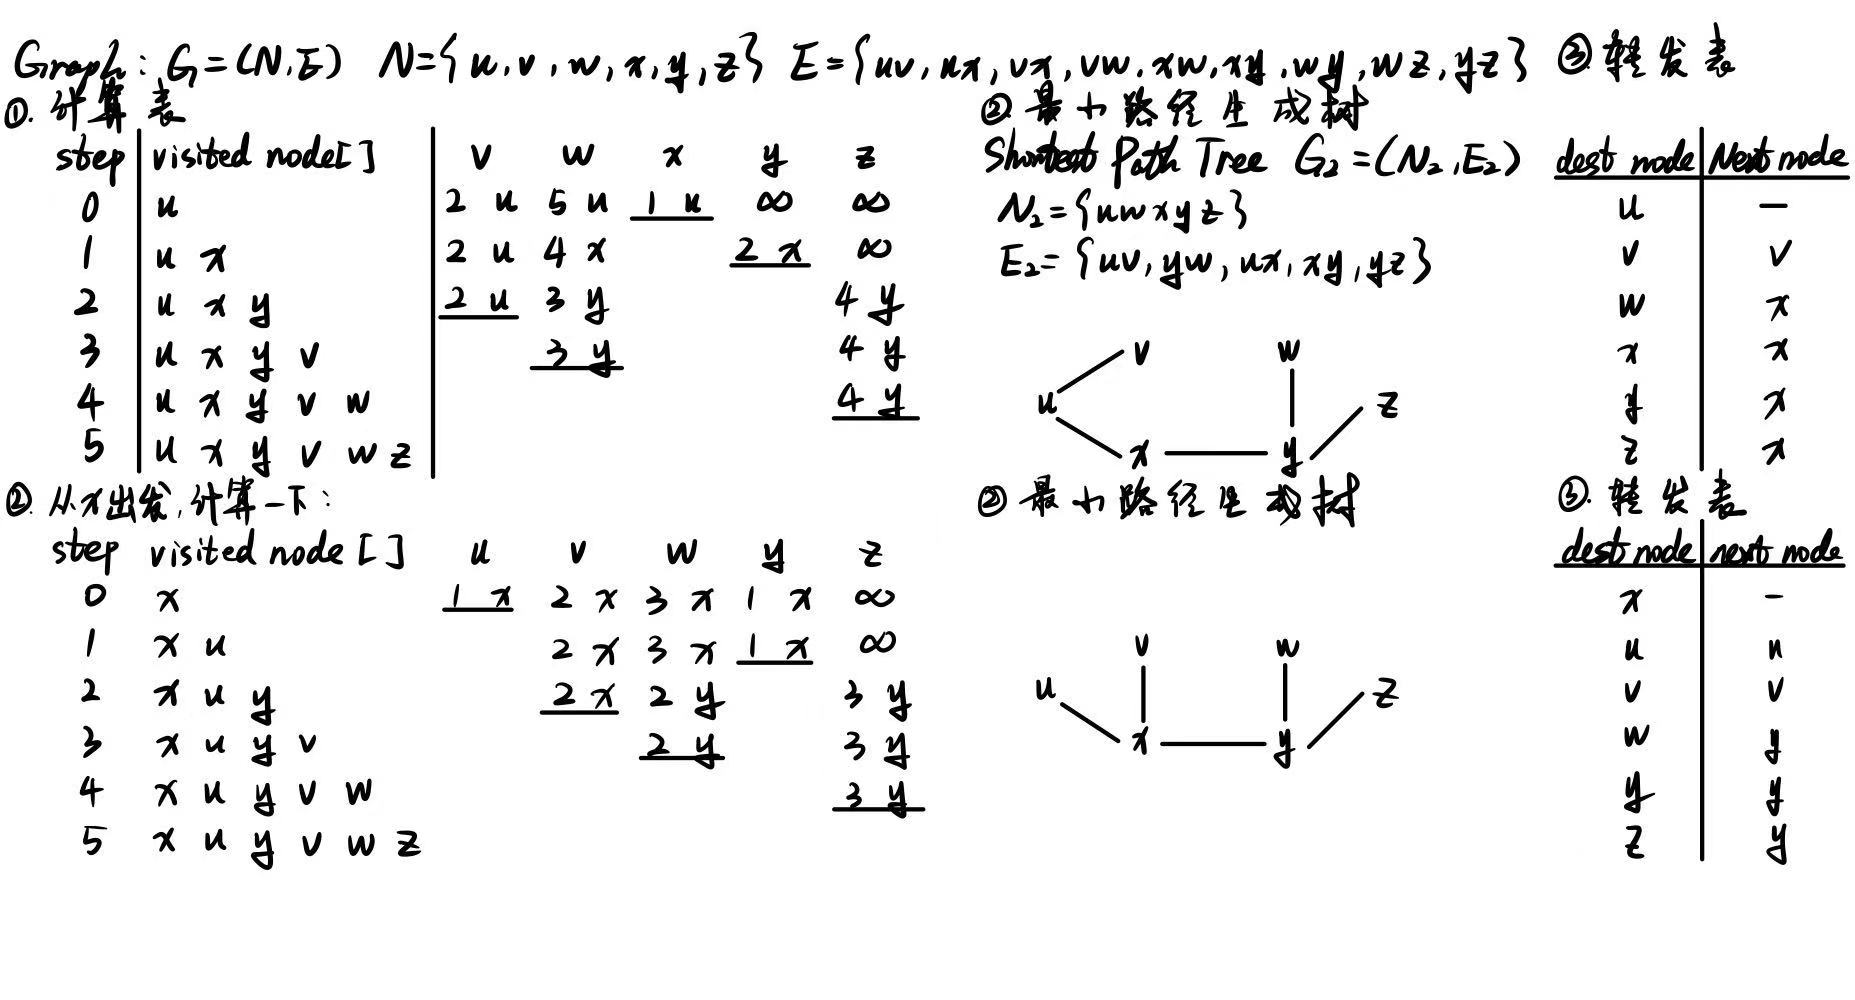 Graph: G=(N,E) N={u,v,w,x,y,z} E={uv,ux,vx,vw,xw,xy,wy,wz,yz}
①. 计算表
step visited node[] v w x y z
0 u 2 u 5 u 1 u ∞ ∞
1 u x 2 u 4 x 2 x ∞
2 u x y 2 u 3 y 4 y
3 u x y v 3 y 4 y
4 u x y v w 4 y
5 u x y v w z
② 最小路径生成树
Shortest Path Tree G₂=(N₂,E₂)
N₂={uwxyz}
E₂={uv,yw,ux,xy,yz}
v w
u z
x y
③ 转发表
dest node Next node
u -
v v
w x
x x
y x
z x
②. 从x出发,计算一下:
step visited node [] u v w y z
0 x 1 x 2 x 3 x 1 x ∞
1 x u 2 x 3 x 1 x ∞
2 x u y 2 x 2 y 3 y
3 x u y v 2 y 3 y
4 x u y v w 3 y
5 x u y v w z
② 最小路径生成树
v w
u z
x y
③. 转发表
dest node next node
x -
u u
v v
w y
y y
z y